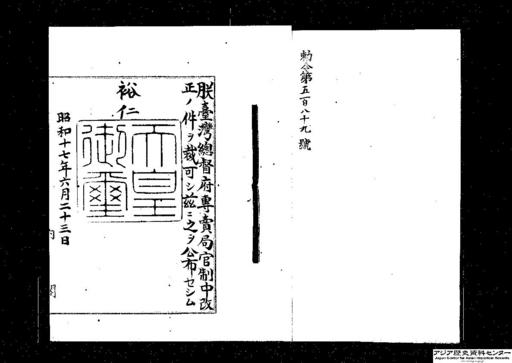 勅令第五百八十九號
朕臺灣總督府專賣局官制中改
正ノ件ヲ裁可シ茲ニ之ヲ公布セシム
裕仁
天皇
御璽
昭和十七年六月二十三日
内閣
アジア歴史資料センター
Japan Center for Asian Historical Records